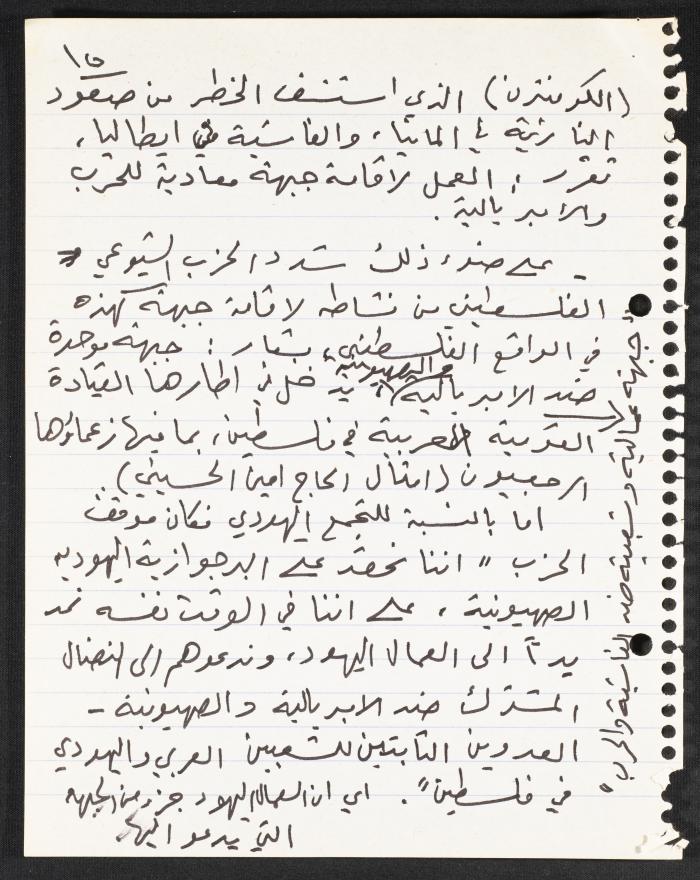 ١٥
(الكومنترن) الذي استشف الخطر من صعود
النازية في المانيا، والفاشية في ايطاليا،
تقرر: العمل لاقامة جبهة معادية للحرب
والامبريالية.
- على ضوء ذلك شدد الحزب الشيوعي
الفلسطيني من نشاطه لاقامة جبهة كهذه
في الواقع الفلسطيني، بشعار: جبهة موحدة
ضد الامبريالية والصهيونية، يدخل في اطارها القيادة
القومية العربية في فلسطين، بما فيها زعماؤها
الرجعيون (امثال الحاج امين الحسيني).
اما بالنسبة للتجمع اليهودي فكان موقف
الحزب "اننا نحقد على البرجوازية اليهوديه
الصهيونية، على اننا في الوقت نفسه نمد
يداً الى العمال اليهود، وندعوهم الى النضال
المشترك ضد الامبريالية والصهيونية -
العدوين الثابتين للشعبين العربي واليهودي
في فلسطين". اي ان العمال اليهود جزء من الجبهه
التي يدعو اليها.
"جبهة عمالية وشعبية ضد الفاشية والحرب"